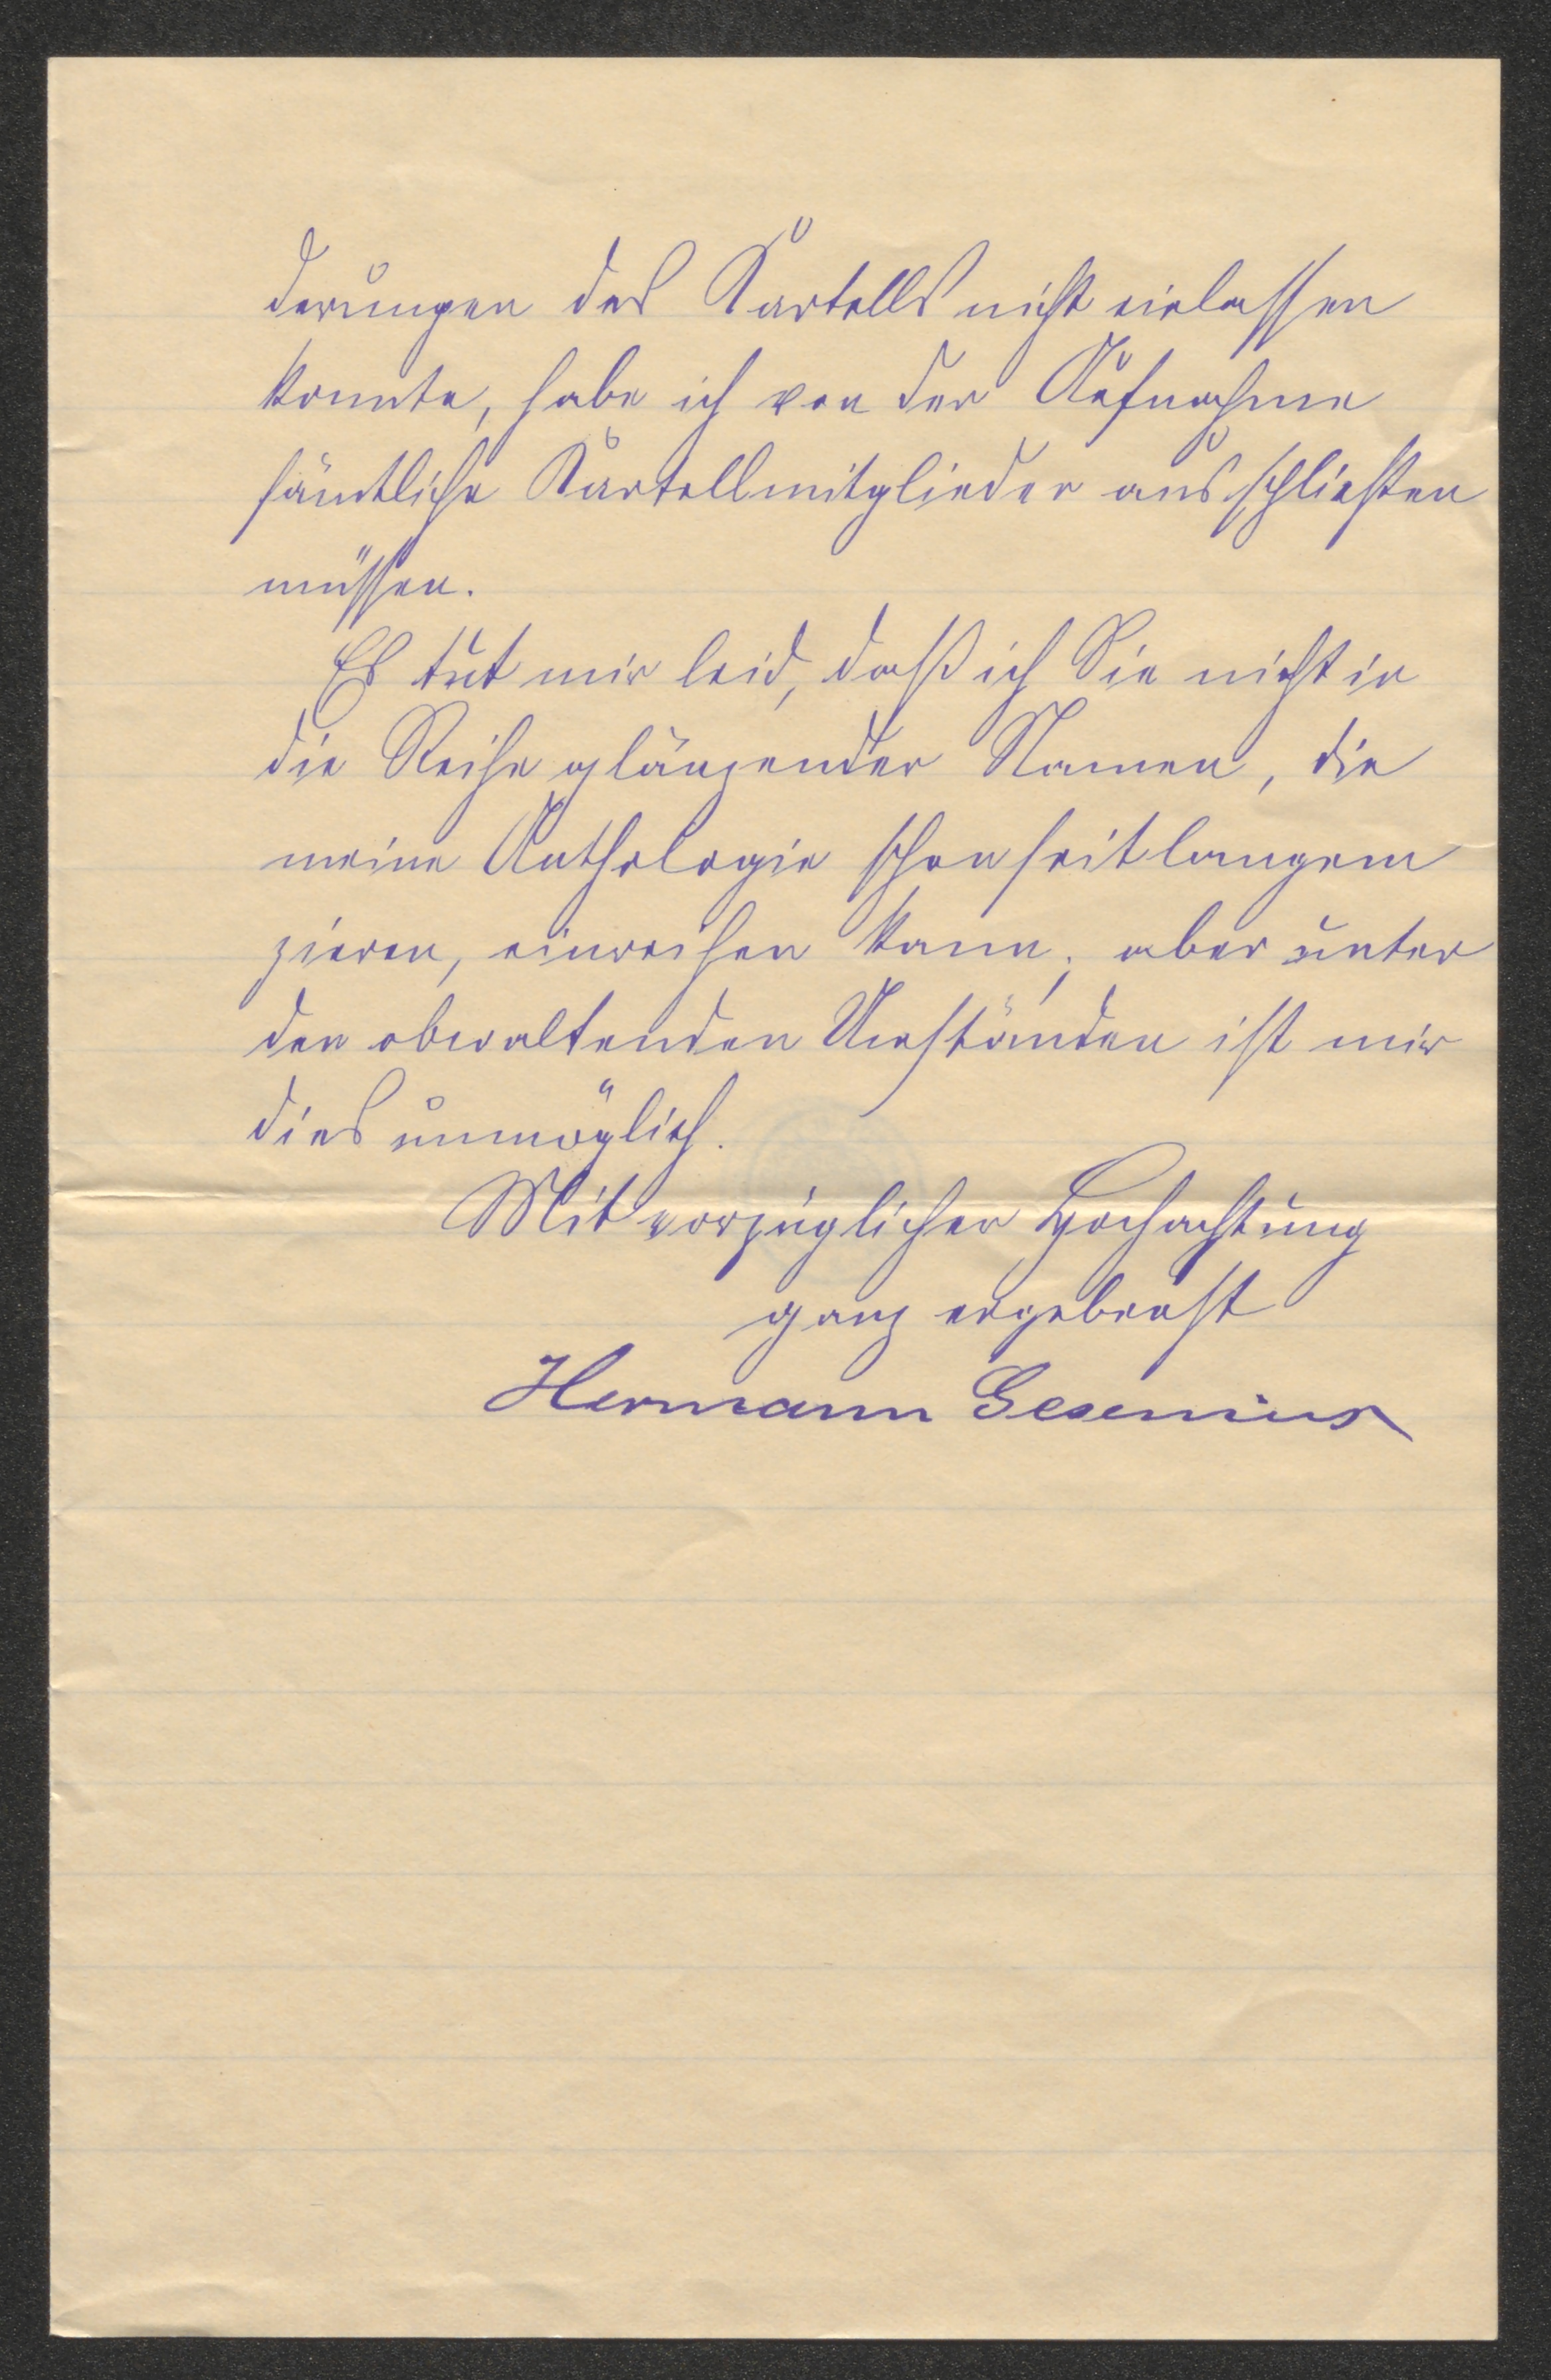 derungen des Kartells nicht einlassen
konnte, habe ich von der Aufnahme
sämtliche Kartellmitglieder ausschließen
müssen.
Es tut mir leid, daß ich Sie nicht in
die Reihe glänzender Namen, die
meine Anthologie schon seit langem
zieren, einreihen kann; aber unter
den obwaltenden Umständen ist mir
dies unmöglich.
Mit vorzüglicher Hochachtung
ganz ergebenst
Hermann Gesenius